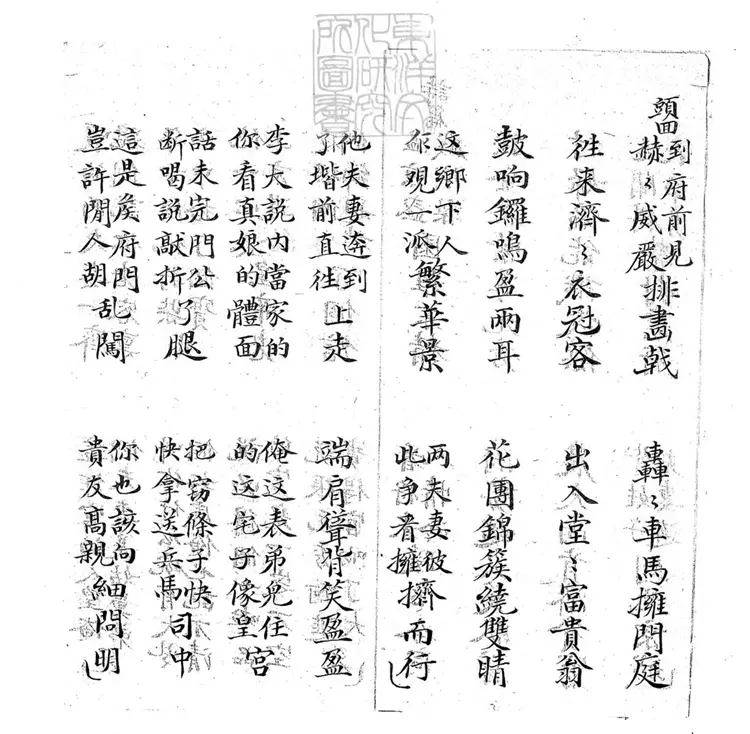 東洋文化研究所圖書
頭回
到府前見赫〻威嚴排畫戟
轟〻車馬擁門庭
徃来濟〻衣冠客
出入堂〻富貴翁
鼓响鑼鳴盈兩耳
花團錦簇繞雙睛
这鄉下人乍觀一派繁華景
两夫妻彼此争看擁擠而行
他夫妻逩到了堦前直徃上走
端肩聳背笑盈盈
李大說内當家的你看真娘的體面
俺这表弟兒住的这宅子像皇宮
話未完門公断喝說敲折了腿
把窃條子快快拿送兵馬司中
這是矦府門豈許閒人胡乱闖
你也該向貴友髙親細問明